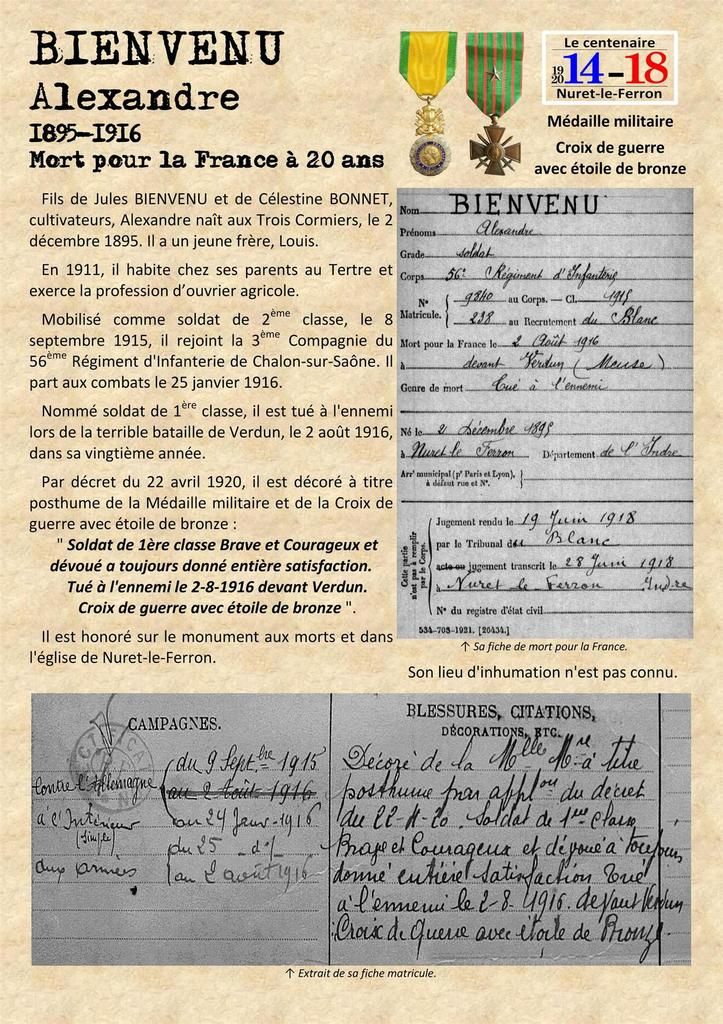 BIENVENU
Alexandre
1895–1916
Mort pour la France à 20 ans
Le centenaire
19 14–18
20
Nuret-le-Ferron
Médaille militaire
Croix de guerre
avec étoile de bronze
Fils de Jules BIENVENU et de Célestine BONNET,
cultivateurs, Alexandre naît aux Trois Cormiers, le 2
décembre 1895. Il a un jeune frère, Louis.
En 1911, il habite chez ses parents au Tertre et
exerce la profession d'ouvrier agricole.
Mobilisé comme soldat de 2ème classe, le 8
septembre 1915, il rejoint la 3ème Compagnie du
56ème Régiment d'Infanterie de Chalon-sur-Saône. Il
part aux combats le 25 janvier 1916.
Nommé soldat de 1ère classe, il est tué à l'ennemi
lors de la terrible bataille de Verdun, le 2 août 1916,
dans sa vingtième année.
Par décret du 22 avril 1920, il est décoré à titre
posthume de la Médaille militaire et de la Croix de
guerre avec étoile de bronze :
" Soldat de 1ère classe Brave et Courageux et
dévoué a toujours donné entière satisfaction.
Tué à l'ennemi le 2-8-1916 devant Verdun.
Croix de guerre avec étoile de bronze ".
Il est honoré sur le monument aux morts et dans
l'église de Nuret-le-Ferron.
Nom BIENVENU
Prénoms Alexandre
Grade soldat
Corps 56e Régiment d'Infanterie
N° 9840 au Corps. — Cl. 1915
Matricule. 238 au Recrutement du Blanc
Mort pour la France le 2 Août 1916
à devant Verdun (Meuse)
Genre de mort Tué à l'ennemi
Né le 2 Décembre 1895
à Nuret le Ferron Département de l'Indre
Arrt municipal (pr Paris et Lyon),
à défaut rue et N°.
Cette partie
n'est pas à remplir
par le Corps.
Jugement rendu le 19 Juin 1918
par le Tribunal du Blanc
acte ou jugement transcrit le 28 Juin 1918
à Nuret le Ferron Indre
N° du registre d'état civil
534-708-1921. [26434.]
↑ Sa fiche de mort pour la France.
Son lieu d'inhumation n'est pas connu.
CAMPAGNES.
Contre l'Allemagne du 9 Septbre 1915
au 2 Août 1916
à l'Intérieur au 24 Janv- 1916
(simple)
du 25 do
aux armées au 2 août 1916
BLESSURES, CITATIONS,
DÉCORATIONS, ETC.
Décoré de la Mlle Mre à titre
posthume par applon du décret
du 22-4-20. Soldat de 1ère classe
Brave et Courageux et dévoué a toujours
donné entière satisfaction Tué
à l'ennemi le 2-8-1916. devant Verdun
Croix de Guerre avec étoile de Bronze.
↑ Extrait de sa fiche matricule.